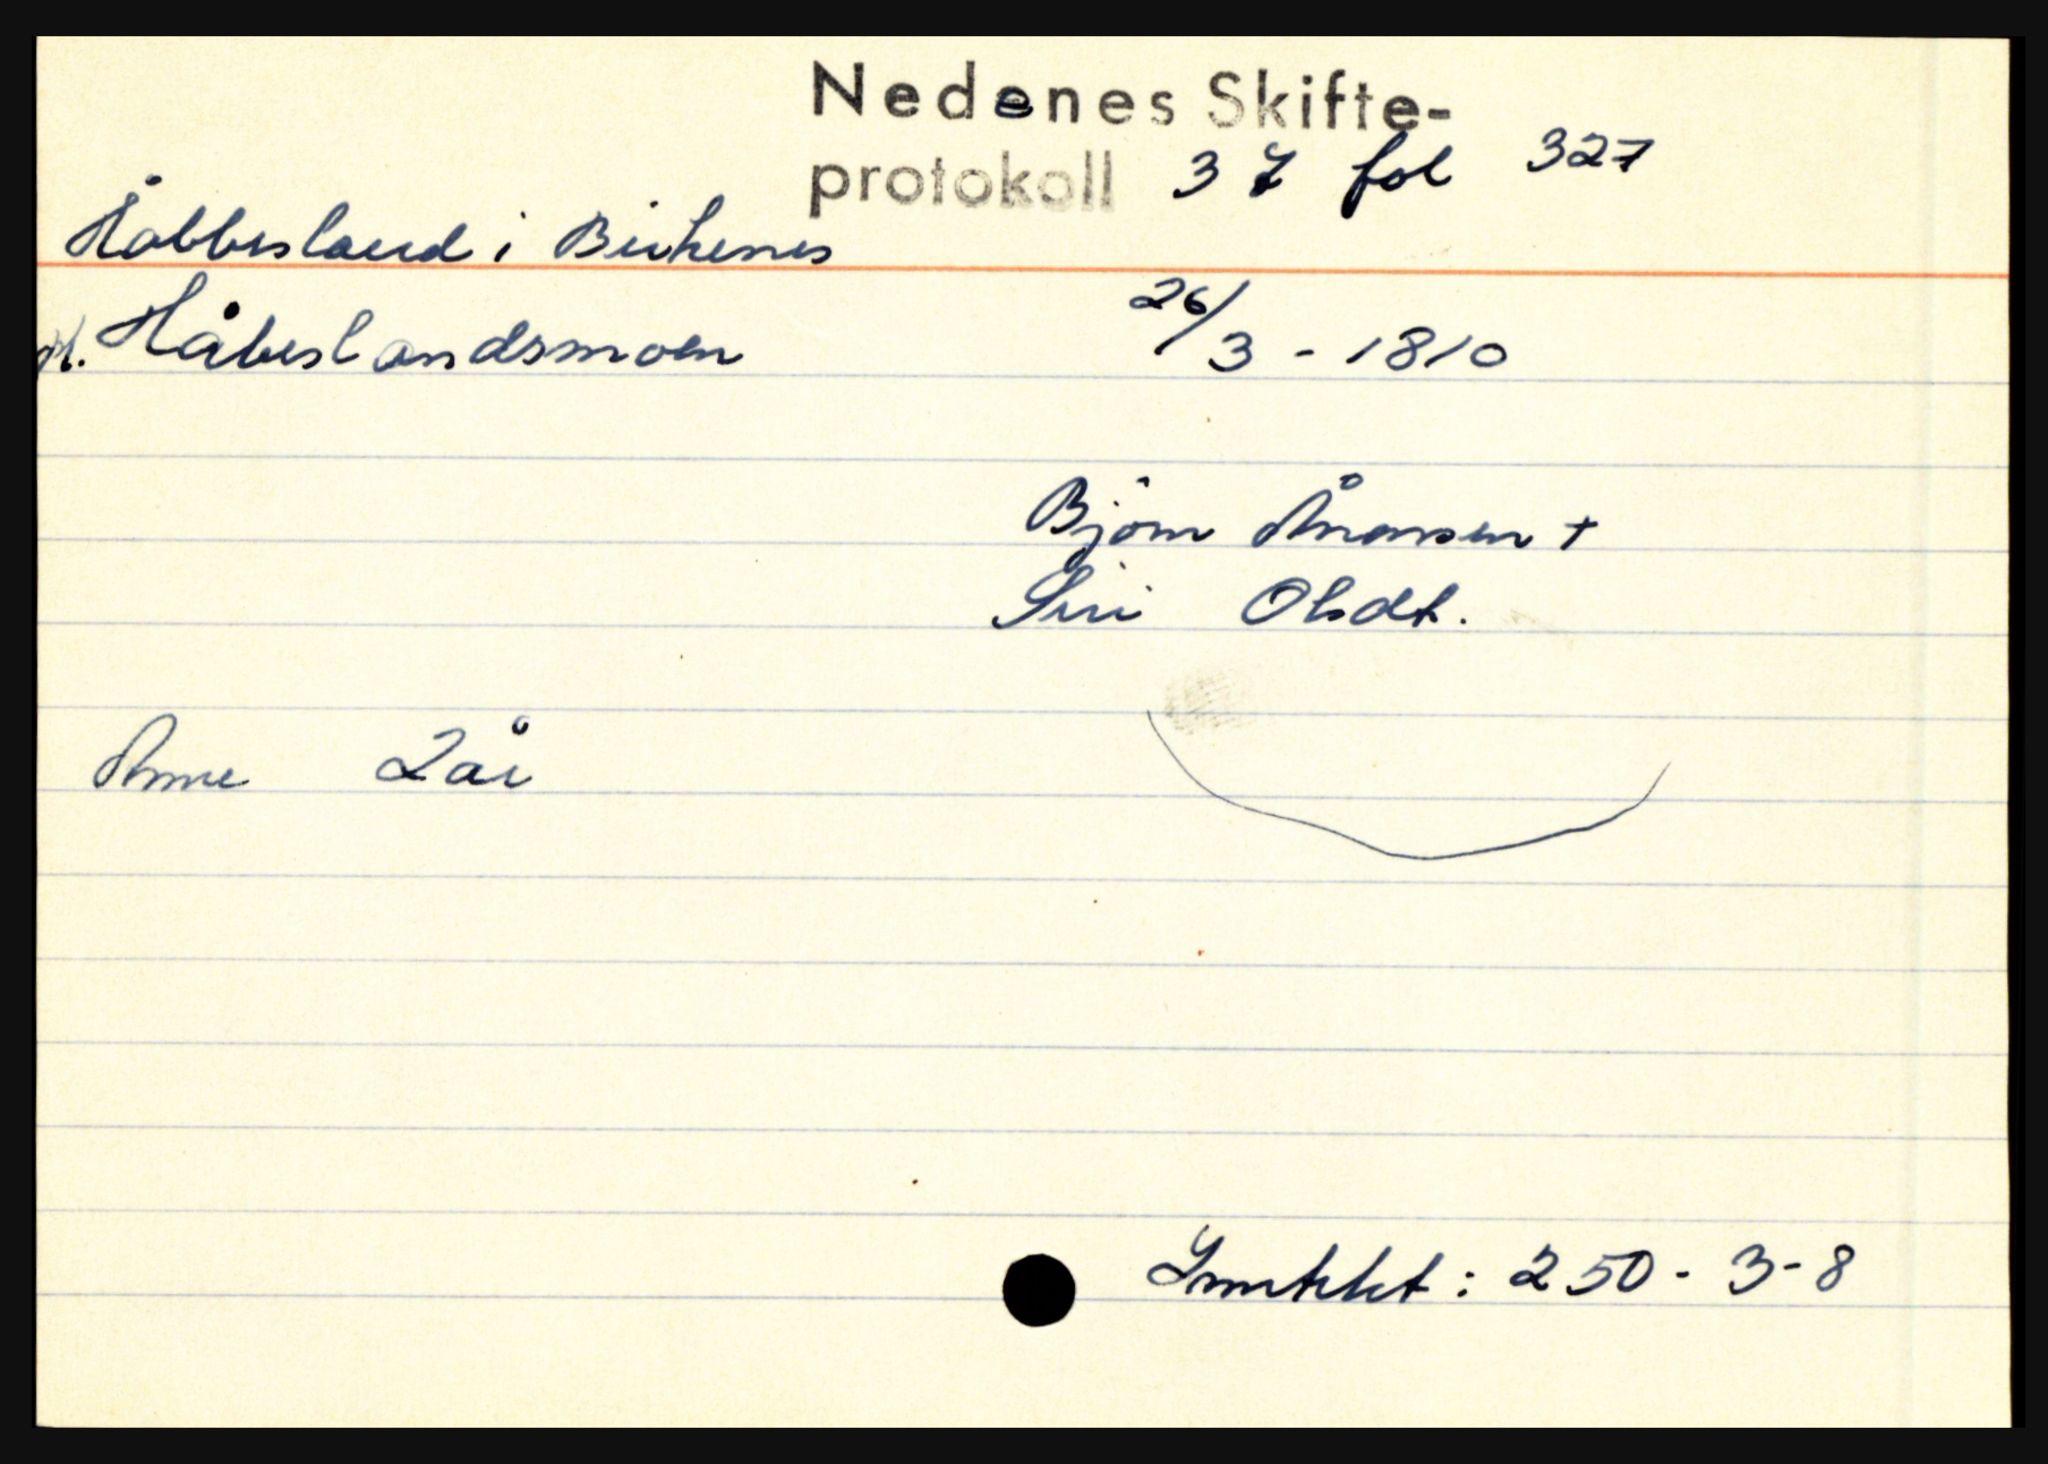 Nedenes Skifte-
protokoll 37 fol 327
Håbbesland i Birkenes
pl. Håbeslandsmoen 26/3 - 1810
Bjørn Ånonsen +
Siri Olsdt.
Anne 2 år
Inntekt: 250 - 3 - 8